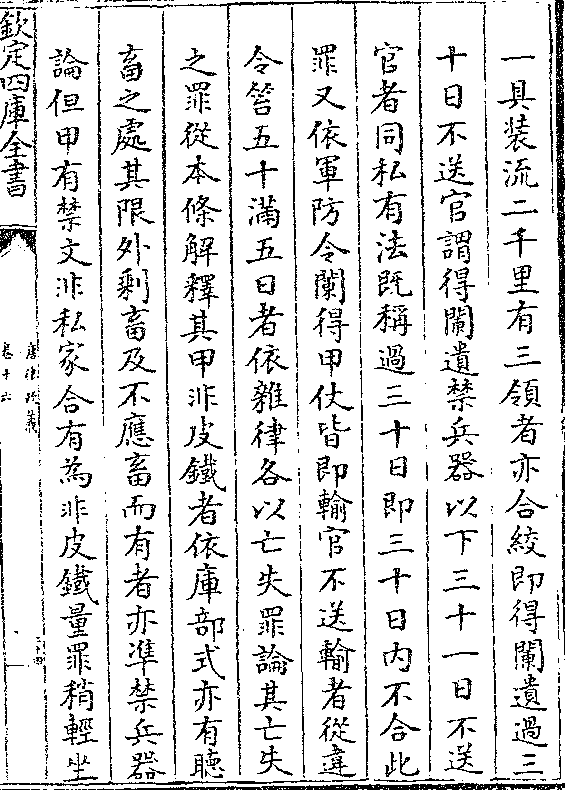 一具装流二千里有三領者亦合絞即得闌遺過三
十日不送官謂得闌遺禁兵器以下三十一日不送
官者同私有法既稱過三十日即三十日内不合此
罪又依軍防令闌得甲仗皆即輸官不送輸者從違
令笞五十滿五日者依雜律各以亡失罪論其亡失
之罪從本條解釋其甲非皮鐵者依庫部式亦有聽
畜之處其限外剩畜及不應畜而有者亦凖禁兵器
論但甲有禁文非私家合有為非皮鐵量罪稍輕坐
欽定四庫全書
唐律疏義
卷十六